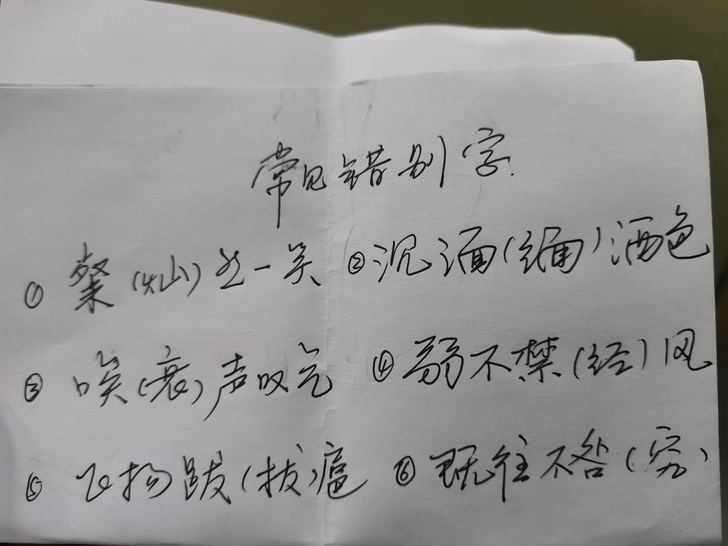 常见错别字
① 粲(灿)然一笑 ② 沉湎(缅)酒色
③ 唉(哀)声叹气 ④ 弱不禁(经)风
⑤ 飞扬跋(拔)扈 ⑥ 既往不咎(究)